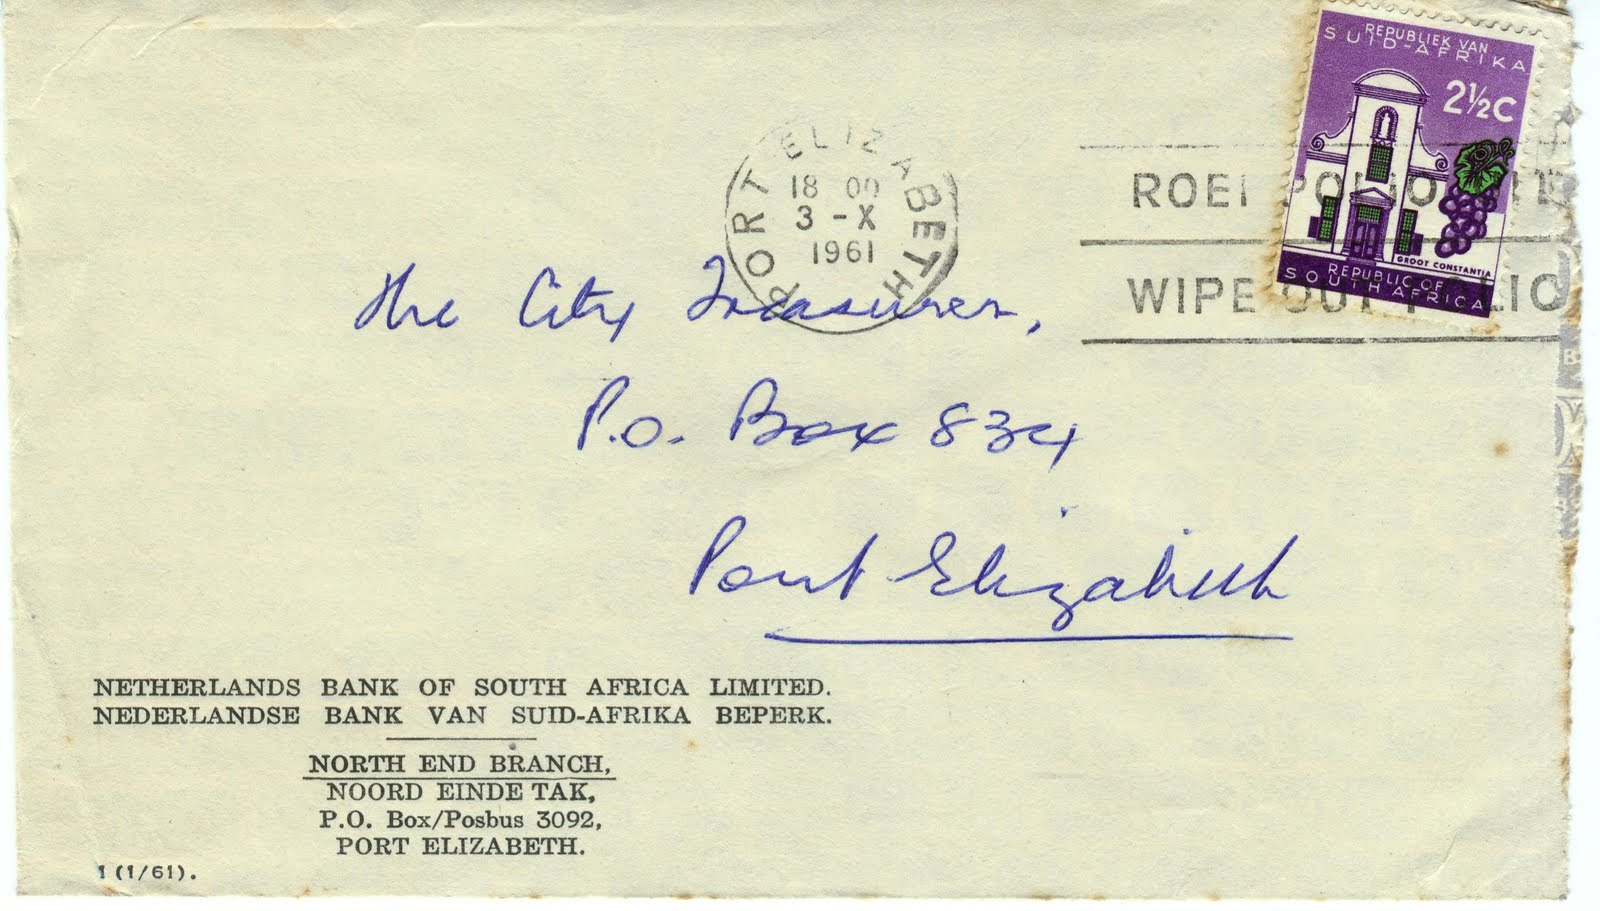 REPUBLIEK VAN
SUID-AFRIKA
2½C
GROOT CONSTANTIA
REPUBLIC OF
SOUTH AFRICA
PORT ELIZABETH
18 00
3 - X
1961
WIPE OUT
The City Treasurer,
P.O. Box 834
Port Elizabeth
NETHERLANDS BANK OF SOUTH AFRICA LIMITED.
NEDERLANDSE BANK VAN SUID-AFRIKA BEPERK.
NORTH END BRANCH,
NOORD EINDE TAK,
P.O. Box/Posbus 3092,
PORT ELIZABETH.
1 (1/61).